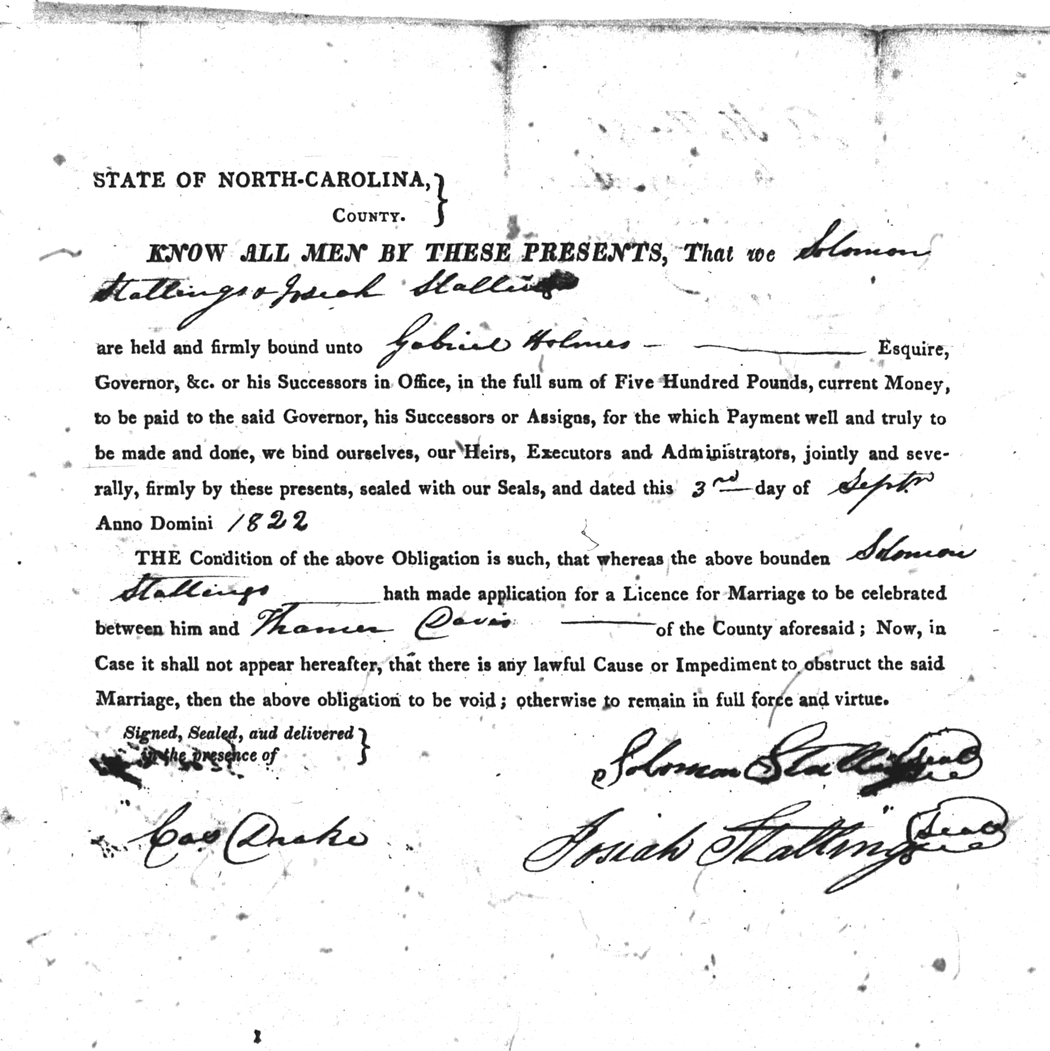 STATE OF NORTH-CAROLINA, }
COUNTY.
KNOW ALL MEN BY THESE PRESENTS, That we Solomon
Stallings & Josiah Stallings
are held and firmly bound unto Gabriel Holmes — Esquire,
Governor, &c. or his Successors in Office, in the full sum of Five Hundred Pounds, current Money,
to be paid to the said Governor, his Successors or Assigns, for the which Payment well and truly to
be made and done, we bind ourselves, our Heirs, Executors and Administrators, jointly and seve-
rally, firmly by these presents, sealed with our Seals, and dated this 3rd day of Septr
Anno Domini 1822
THE Condition of the above Obligation is such, that whereas the above bounden Solomon
Stallings hath made application for a Licence for Marriage to be celebrated
between him and Thamer Davis of the County aforesaid; Now, in
Case it shall not appear hereafter, that there is any lawful Cause or Impediment to obstruct the said
Marriage, then the above obligation to be void; otherwise to remain in full force and virtue.
Signed, Sealed, aud delivered }
in the presence of
Solomon Stallings Seal
Drake
Josiah Stallings Seal